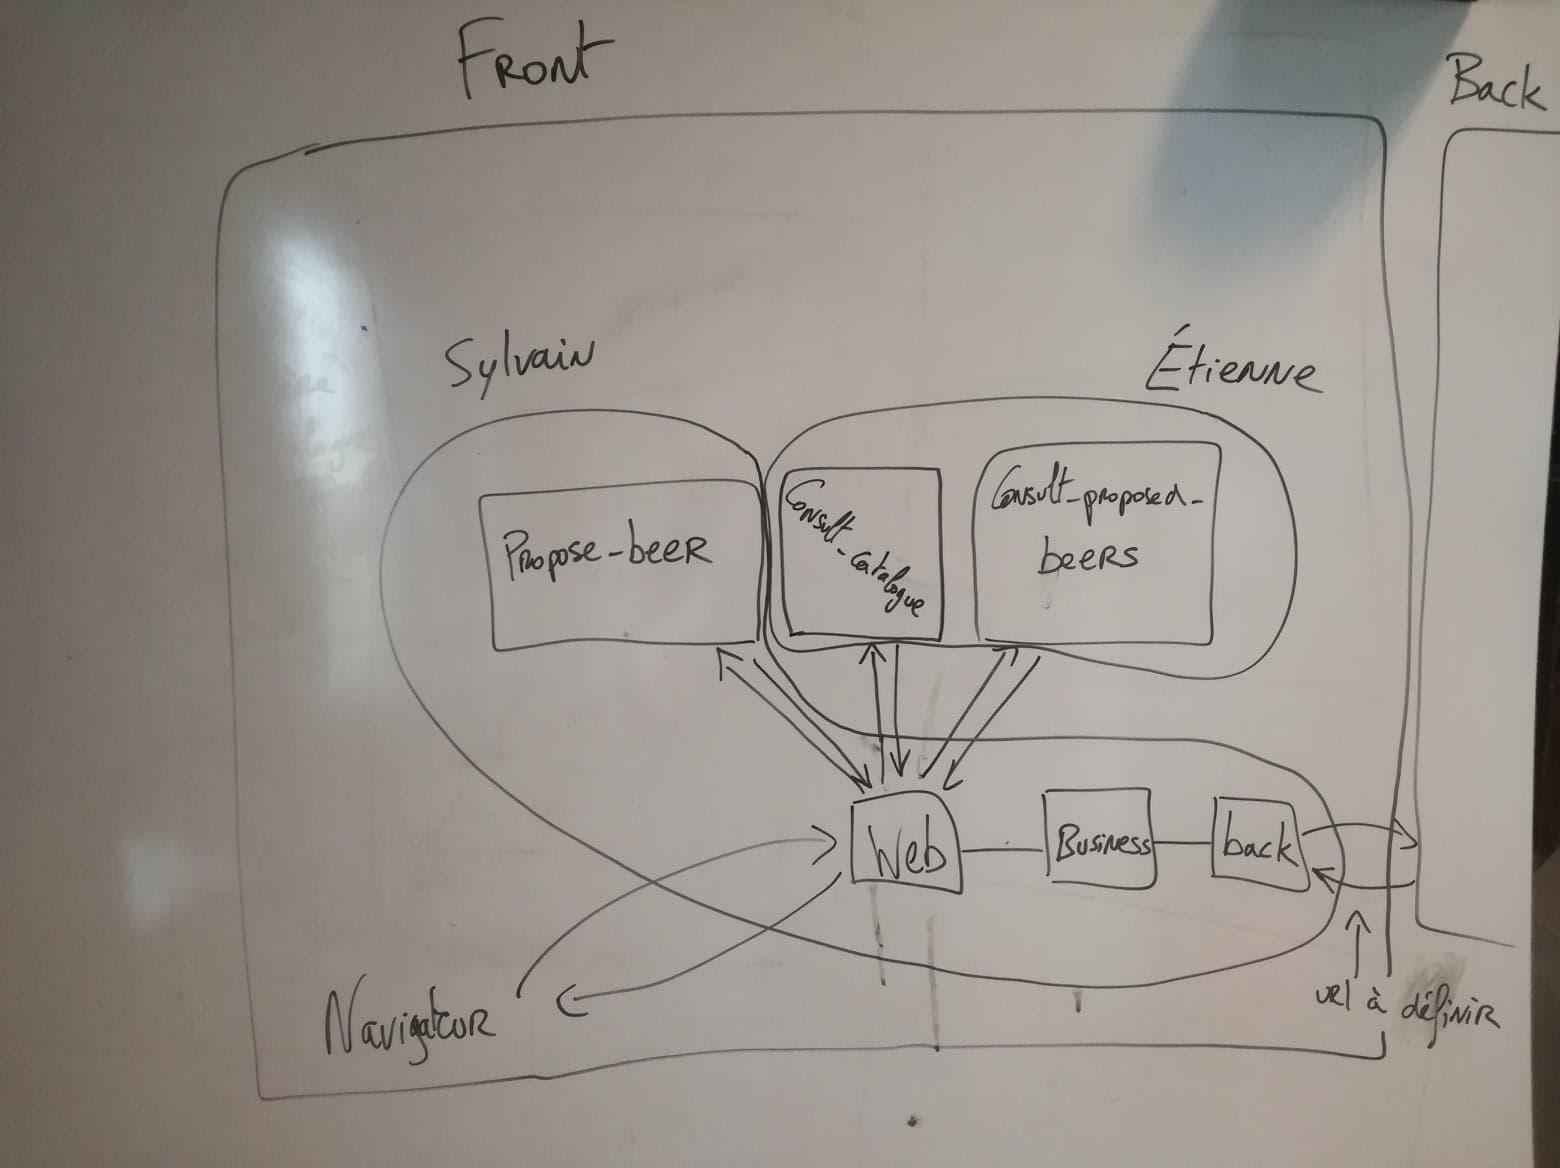 Front
Back
Sylvain
Étienne
Propose-beer
Consult_catalogue
Consult_proposed_
beers
Web
Business
back
Navigateur
url à définir